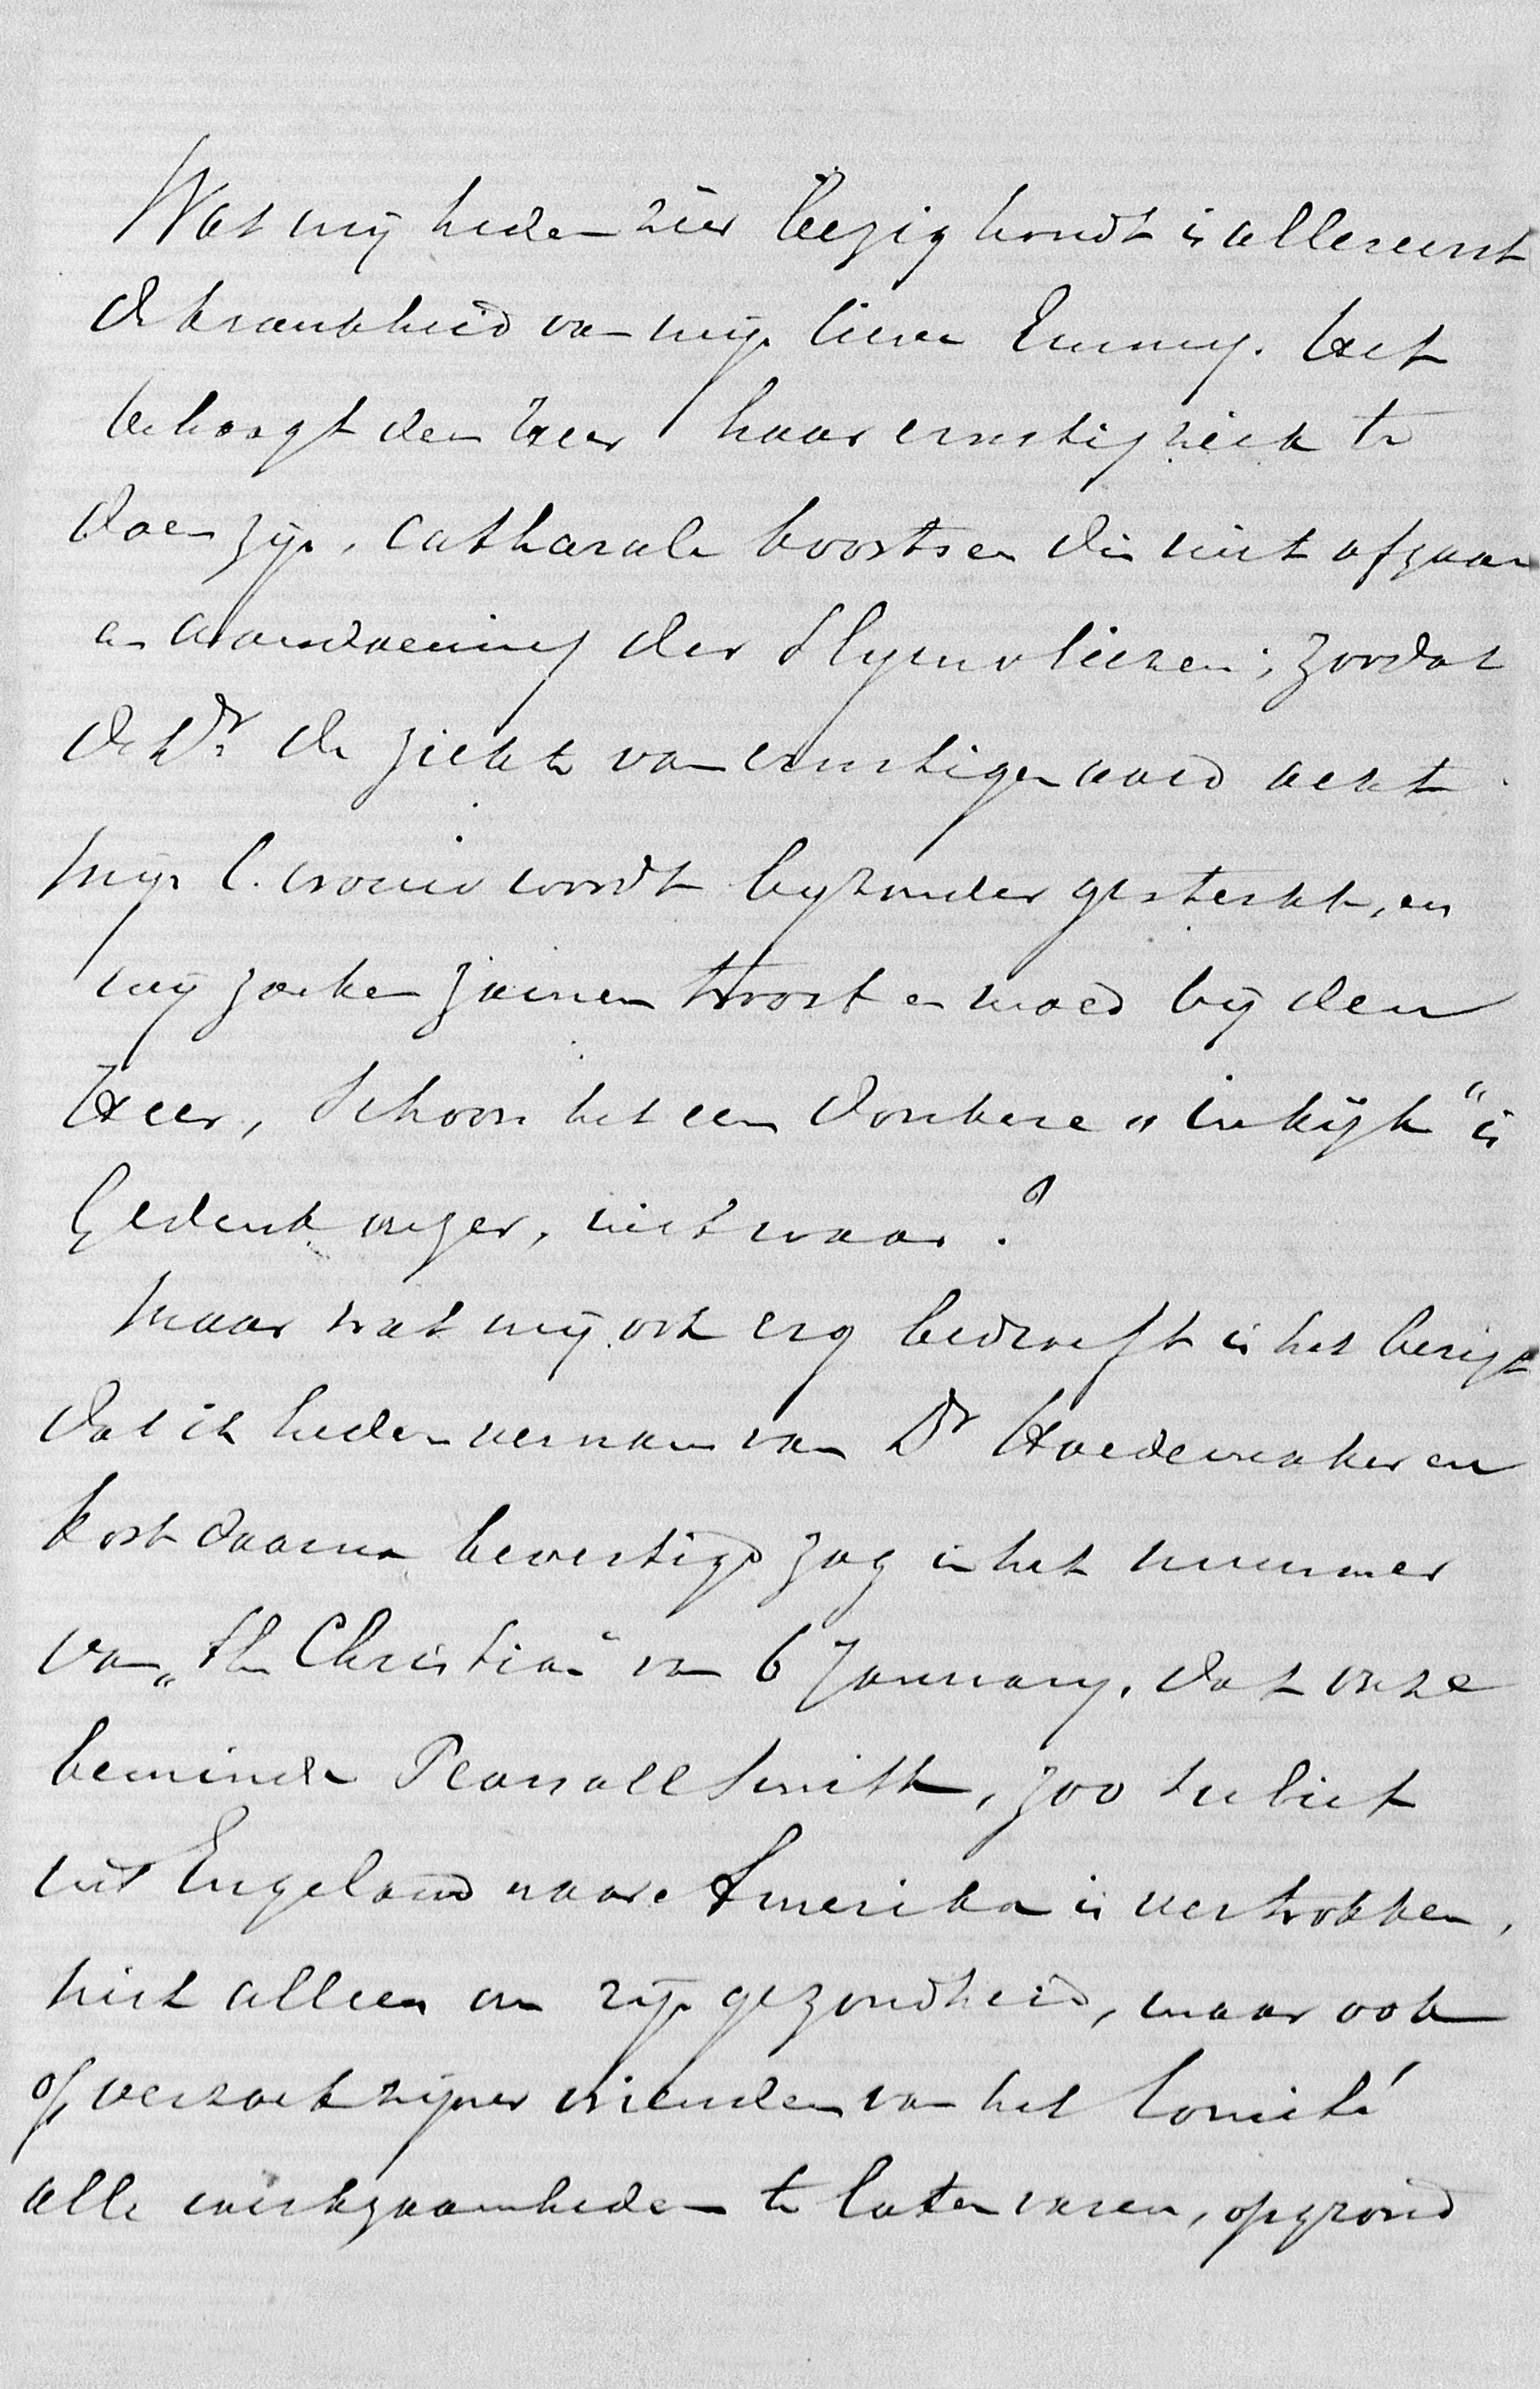 Wat mij heden zeer bezig houdt is allereerst
de krankheid van mijn lieve Emmy. Het
behaagt den Heer haar ernstig ziek te
doen zijn, catharale koortsen die niet afgaan
en aandoening der slijmvliezen; zoodat
de Dr. de ziekte van ernstigen aard acht.
Mijn l. vrouw wordt byzonder gesterkt, en
wij zoeken zamen troost en moed bij den
Heer, schoon het een donkere „inkijk" is
Gedenk onzer, niet waar?
Maar wat mij ook erg bedroeft is het berigt
dat ik heden vernam van Dr Hoedemaker en
kort daarna bevestigd zag in het nummer
van „the Christian" van 6 January, dat onze
beminde Pearsall Smith, zoo subiet
uit Engeland naar Amerika is vertrokken,
niet alleen om zijn gezondheid, maar ook
op verzoek zijner vrienden van het Comité
alle werkzaamheden te laten varen, op grond